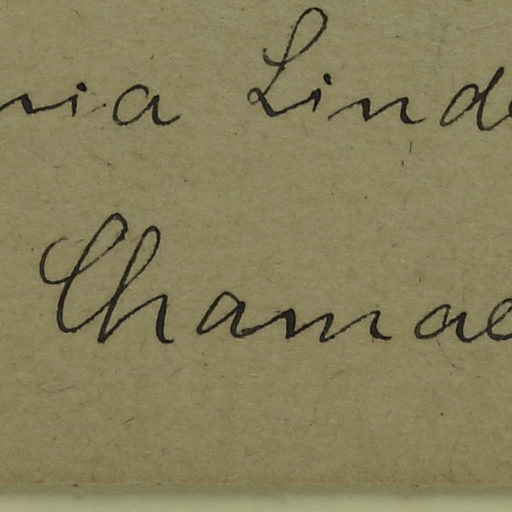 nia Linde
Chamae